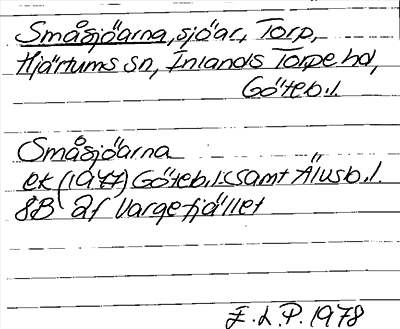 Småsjöarna, sjöar, Torp,
Hjärtums sn, Inlands Torpe hd,
Göteb.l.
Småsjöarna
ek (1977) Göteb.l. samt Älvsb.l.
8B 2f Vargefjället
E.L.P. 1978